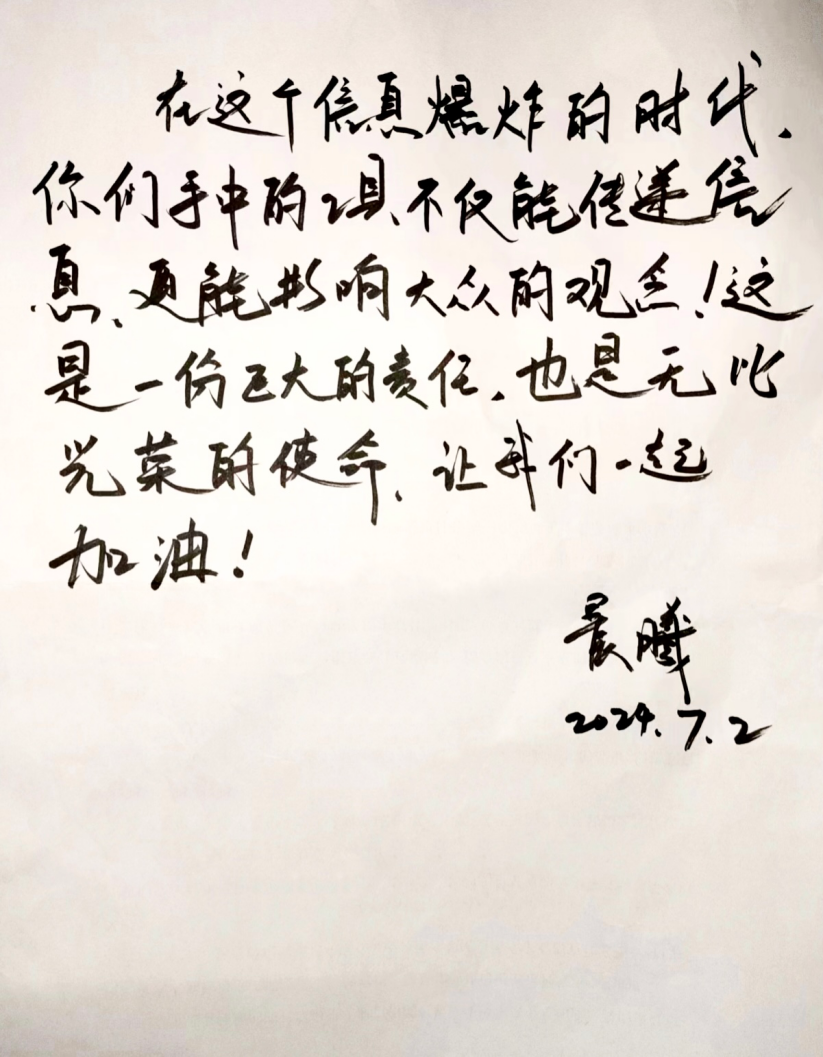 在这个信息爆炸的时代，
你们手中的工具、不仅能传递信
息、更能影响大众的观念！这
是一份巨大的责任，也是无比
光荣的使命，让我们一起
加油！
晨曦
2024.7.2